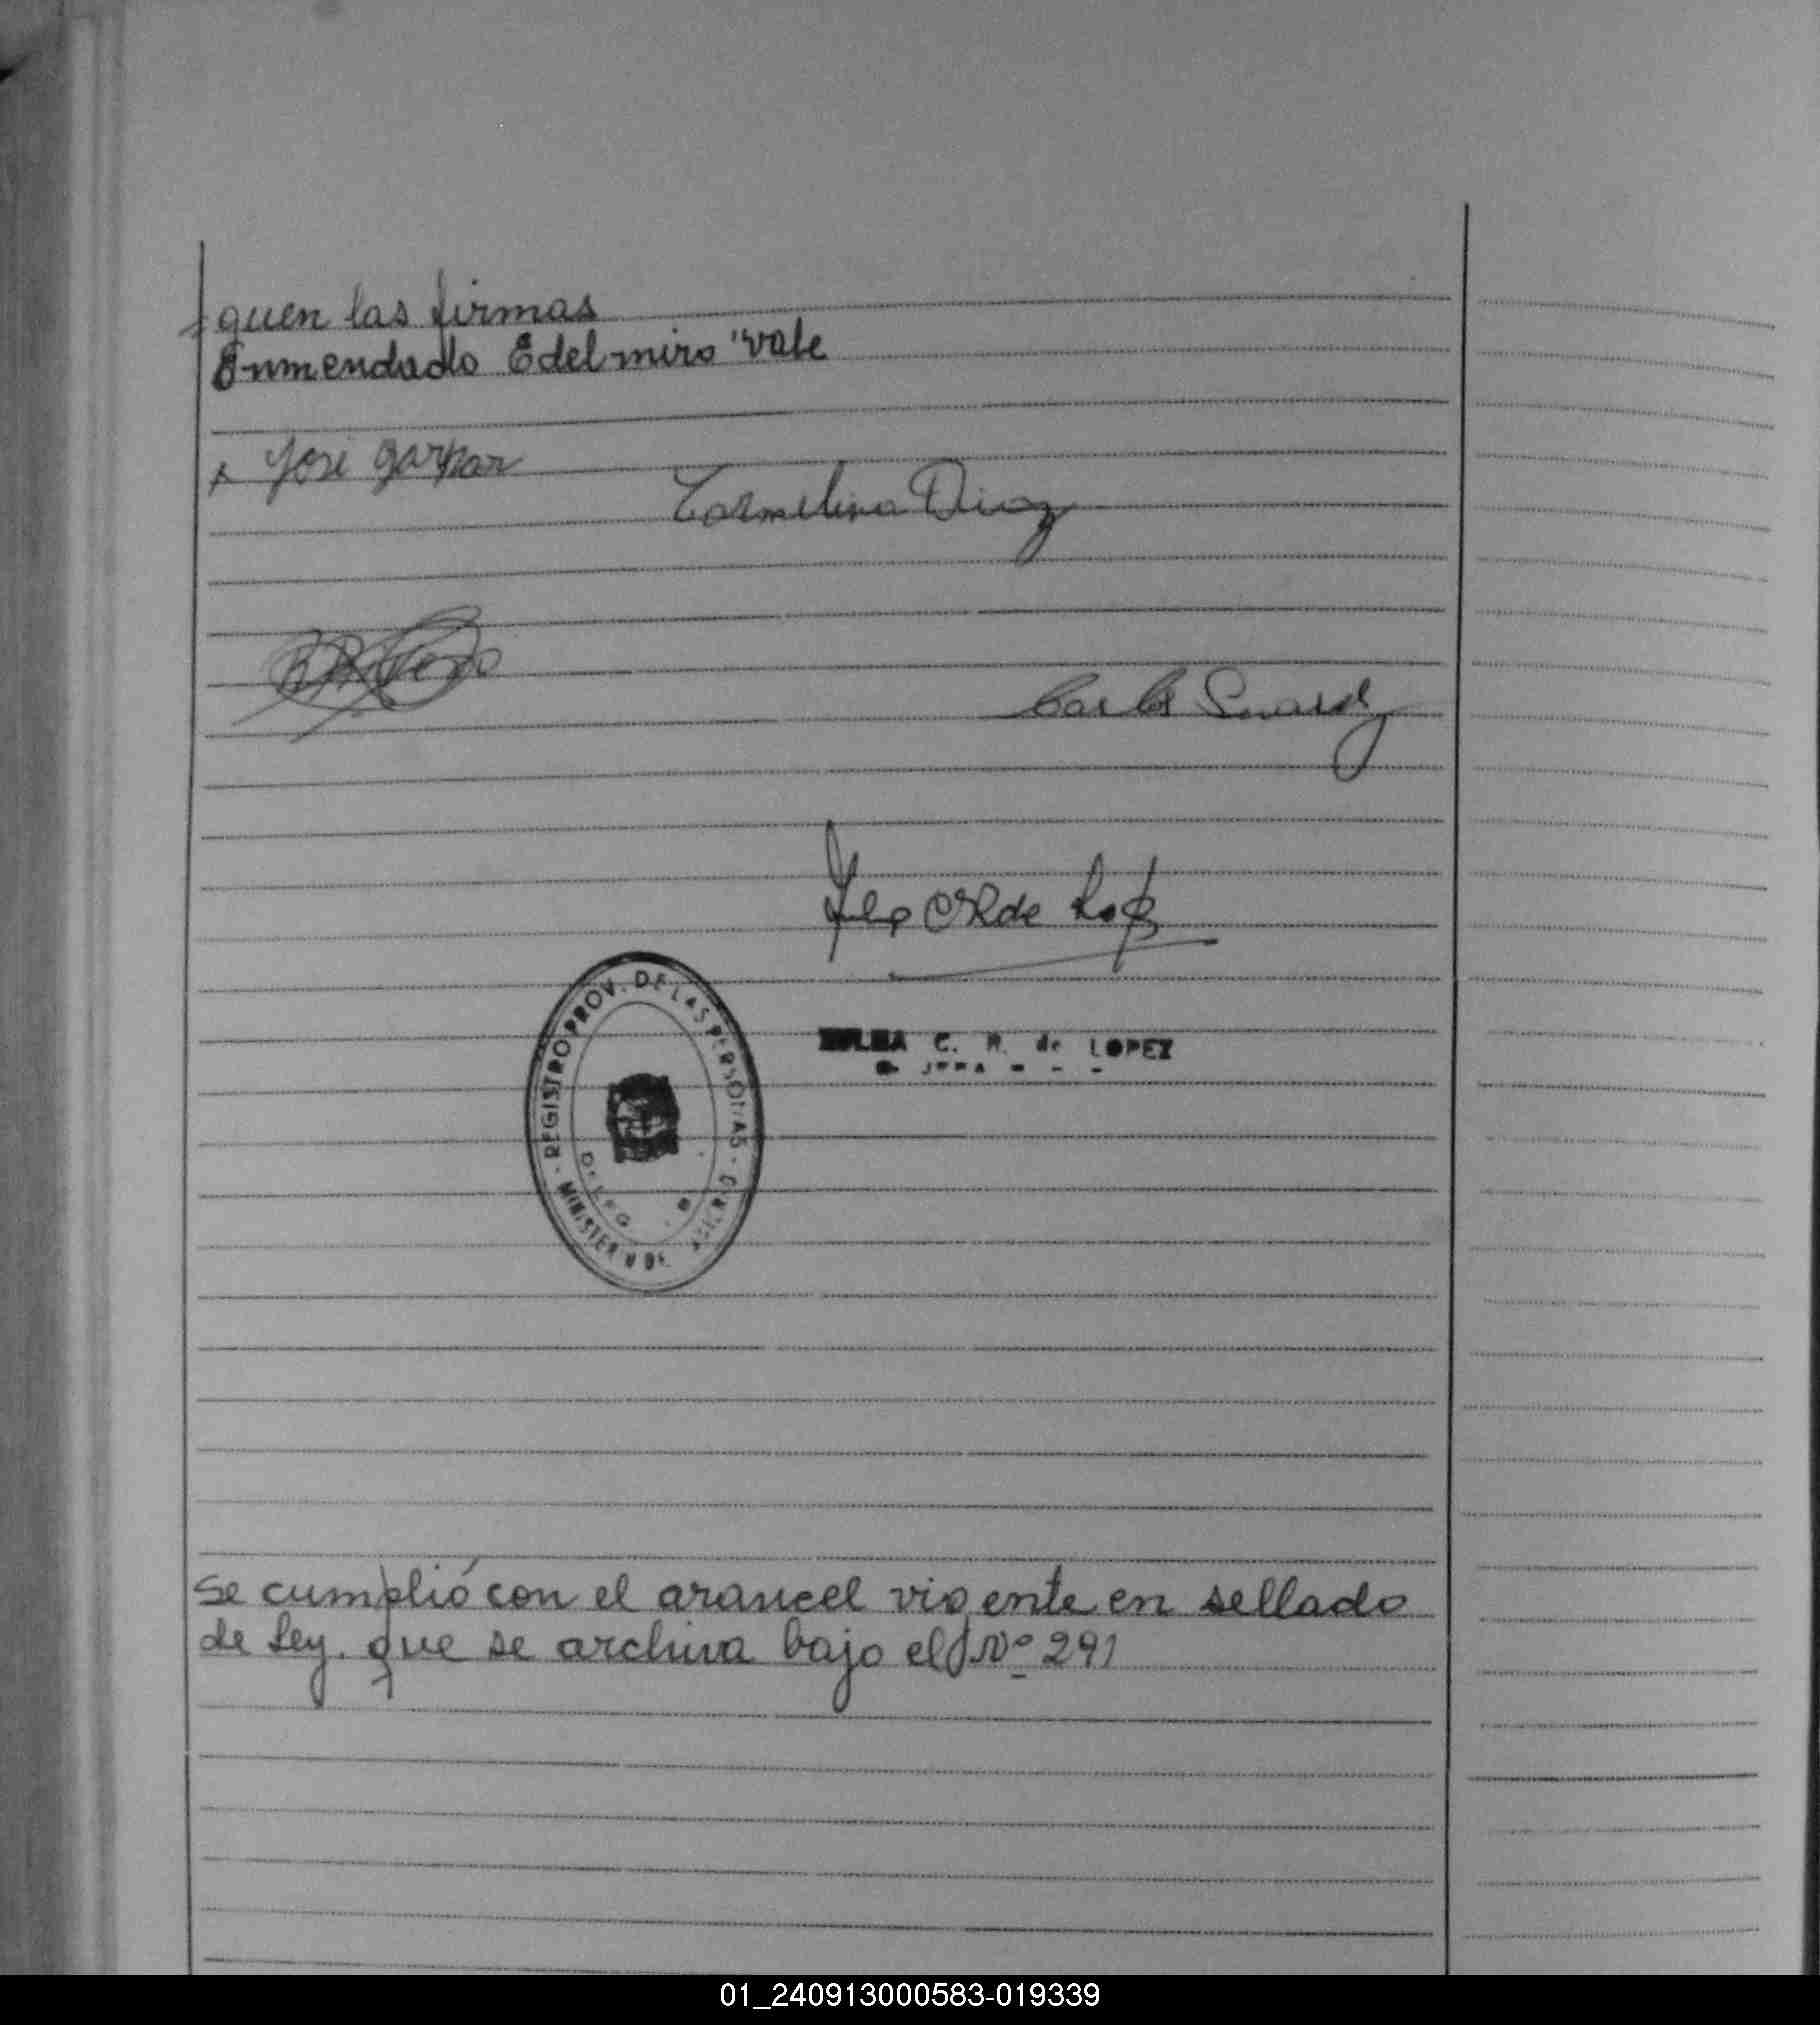 guen las firmas
Enmendado Edelmiro "vale
x José Gaspar
Carmelina Diaz
Carlos Suarez
C. R. de LOPEZ
REGISTRO PROV. DE LAS PERSONAS
MINISTERIO DE
se cumplió con el arancel vigente en sellado
de Ley. que se archiva bajo el Nº 291
01_240913000583-019339